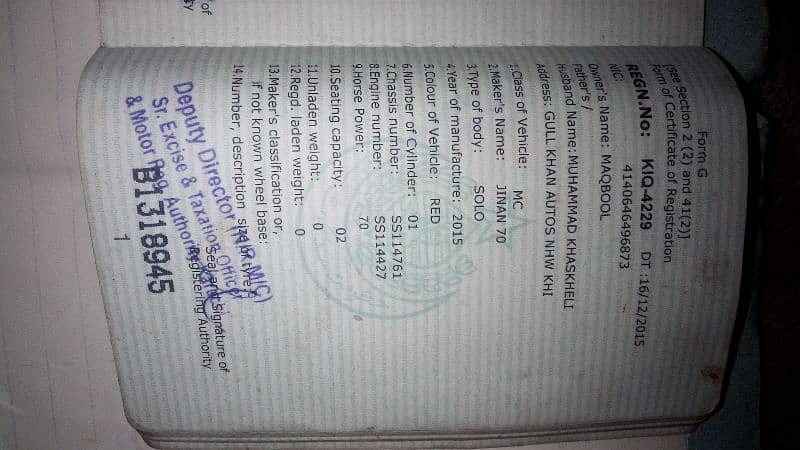 Form G
[See Section 2 (2) and 41(2)]
Form of Certificate of Registration
REGN.No: KIQ-4229 DT :16/12/2015
NIC: 4140646496873
Owner's Name: MAQBOOL
Father's /
Husband Name: MUHAMMAD KHASKHELI
Address: GULL KHAN AUTOS NHW KHI
1.Class of Vehicle: MC
2.Maker's Name: JINAN 70
3.Type of body: SOLO
4.Year of manufacture: 2015
5.Colour of Vehicle: RED
6.Number of Cylinder: 01
7.Chassis number: SS114761
8.Engine number: SS114427
9.Horse Power: 70
10.Seating capacity: 02
11.Unladen weight: 0
12.Regd. laden weight: 0
13.Maker's classification or,
if not known wheel base:
14.Number, description size of tyre:
Seal and signature of
Registering Authority
Deputy Director
Sr. Excise & Taxation Officer
& Motor Reg. Authority
B1318945
1
of